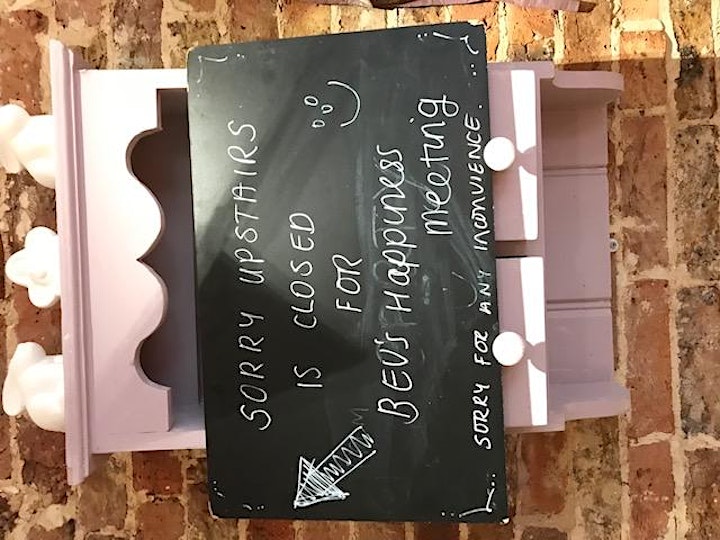 SORRY UPSTAIRS
IS CLOSED
FOR
BEV'S Happiness
meeting
SORRY FOR ANY INCONVIENCE.